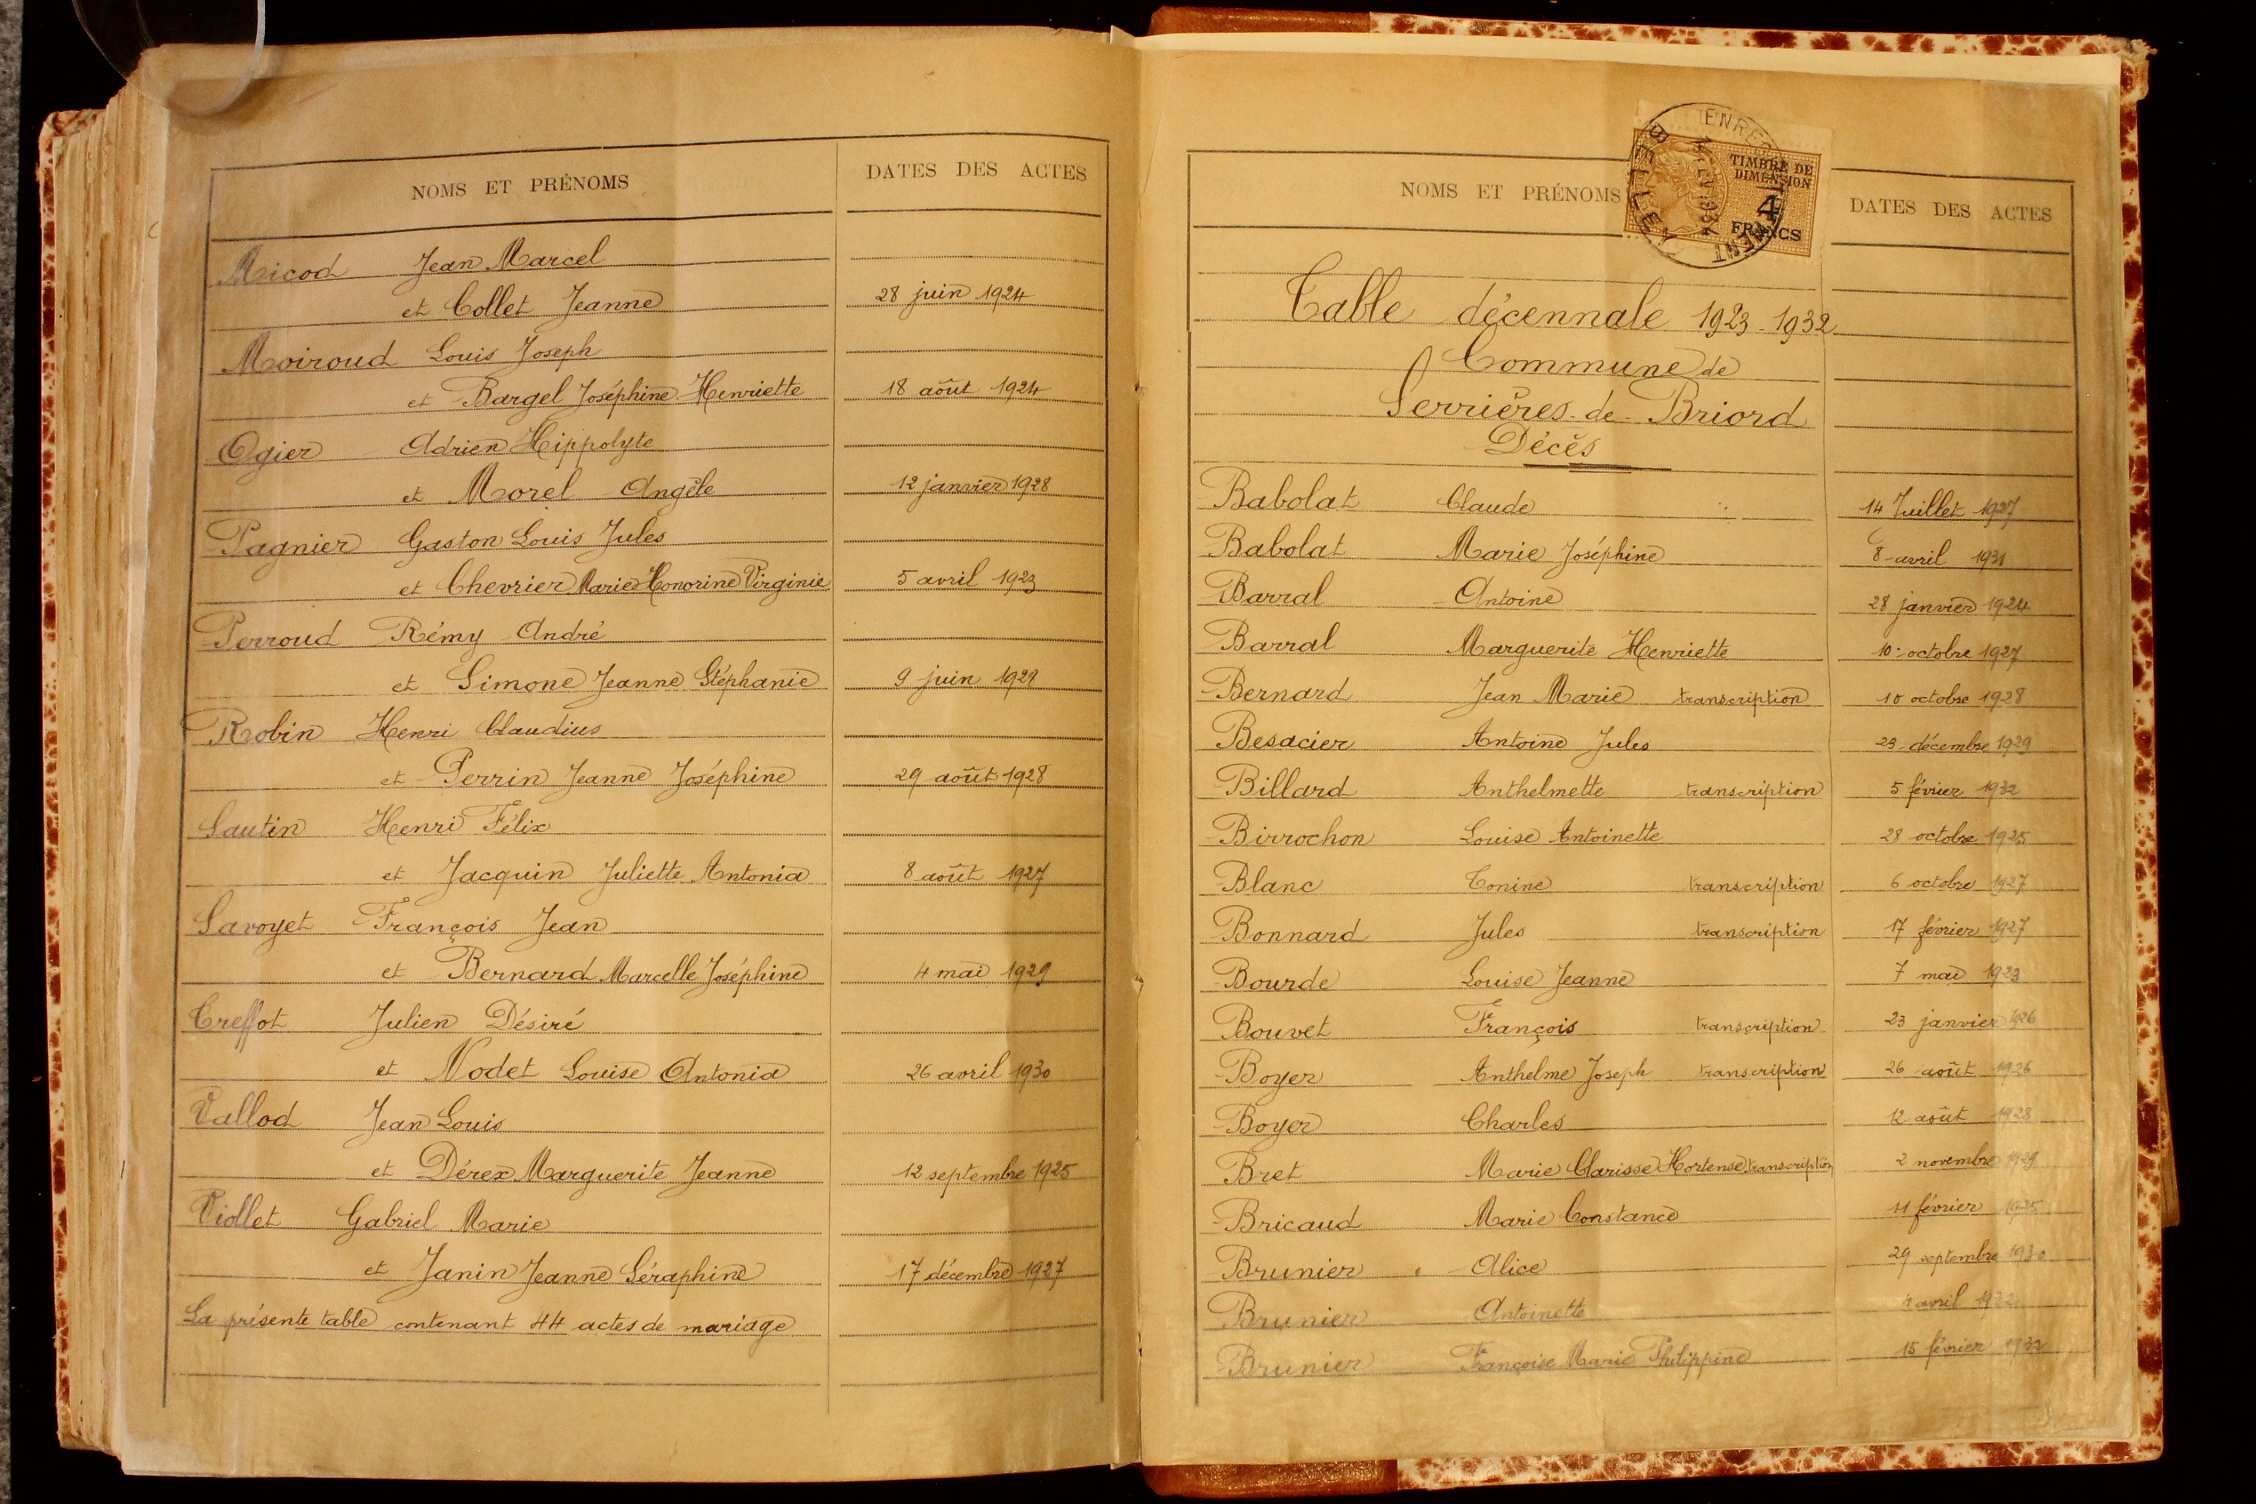 NOMS ET PRÉNOMS DATES DES ACTES
Micod Jean Marcel
et Collet Jeanne 28 juin 1924
Moiroud Louis Joseph
et Bargel Joséphine Henriette 18 août 1924
Ogier Adrien Hippolyte
et Morel Angèle 12 janvier 1928
Pagnier Gaston Louis Jules
et Chevrier Marie Honorine Virginie 5 avril 1923
Perroud Rémy André
et Simone Jeanne Stéphanie 9 juin 1929
Robin Henri Claudius
et Perrin Jeanne Joséphine 29 août 1928
Sautin Henri Félix
et Jacquin Juliette Antonia 8 août 1927
Savoyet François Jean
et Bernard Marcelle Joséphine 4 mai 1929
Treffot Julien Désiré
et Nodet Louise Antonia 26 avril 1930
Vallod Jean Louis
et Dérex Marguerite Jeanne 12 septembre 1925
Viollet Gabriel Marie
et Janin Jeanne Séraphine 17 décembre 1927
La présente table contenant 44 actes de mariage
NOMS ET PRÉNOMS DATES DES ACTES
TIMBRE DE
DIMENSION
4
FRANCS
Table décennale 1923-1932
Commune de
Serrières-de-Briord
Décès
Babolat Claude 14 Juillet 1927
Babolat Marie Joséphine 8 avril 1931
Barral Antoine 28 janvier 1924
Barral Marguerite Henriette 10 octobre 1927
Bernard Jean Marie transcription 10 octobre 1928
Besacier Antoine Jules 23 décembre 1929
Billard Anthelmette transcription 5 février 1932
Birrochon Louise Antoinette 28 octobre 1925
Blanc Tonine transcription 6 octobre 1927
Bonnard Jules transcription 17 février 1927
Bourde Louise Jeanne 7 mai 1923
Bouvet François transcription 23 janvier 1926
Boyer Anthelme Joseph transcription 26 août 1926
Boyer Charles 12 août 1928
Bret Marie Clarisse Hortense transcription 2 novembre 1929
Bricaud Marie Constance 11 février 1925
Brunier Alice 29 septembre 1930
Brunier Antoinette 4 avril 1932
Brunier Françoise Marie Philippine 15 février 1932